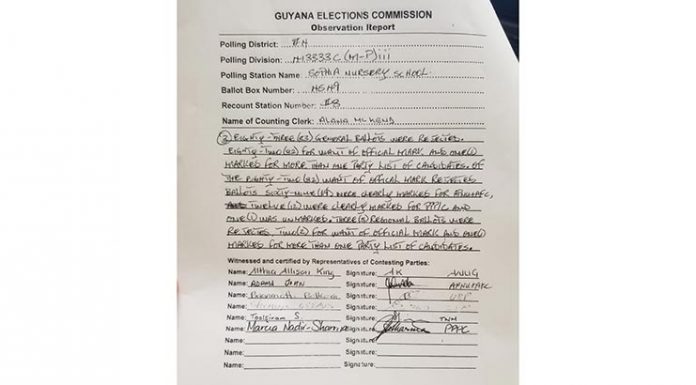 GUYANA ELECTIONS COMMISSION
Observation Report
Polling District: #4
Polling Division:
Polling Station Name: SOPHIA NURSERY SCHOOL
Ballot Box Number:
Recount Station Number: #8
Name of Counting Clerk: ALANA
② EIGHTY-THREE (83) GENERAL BALLOTS WERE REJETED.
EIGHTY-TWO (82) FOR WANT OF OFFICAL MARK AND ONE(1)
MARKED FOR MORE THAN ONE PARTY LIST OF CANDIDATES. OF
THE EIGHTY-TWO (82) WANT OF OFFICAL MARK REJETED
BALLOTS SIXTY-NINE (69) WERE CLEARLY MARKED FOR APNU/AFC,
TWELVE (12) WERE CLEARLY MARKED FOR PPP/C AND
ONE (1) WAS UNMARKED. THREE (3) REGIONAL BALLOTS WERE
REJETED, TWO(2) FOR WANT OF OFFICAL MARK AND ONE(1)
MARKED FOR MORE THAN ONE PARTY LIST OF CANDIDATES.
Witnessed and certified by Representatives of Contesting Parties:
Name: Althea Allison King Signature: AK
Name: ADAMS JOHN Signature: APNU/AFC
Name: Signature:
Name: Signature:
Name: Toolsiram S. Signature: TNM
Name: Marcia Nadir-Sharma Signature: PPP/C
Name: Signature:
Name: Signature:
Name: Signature: